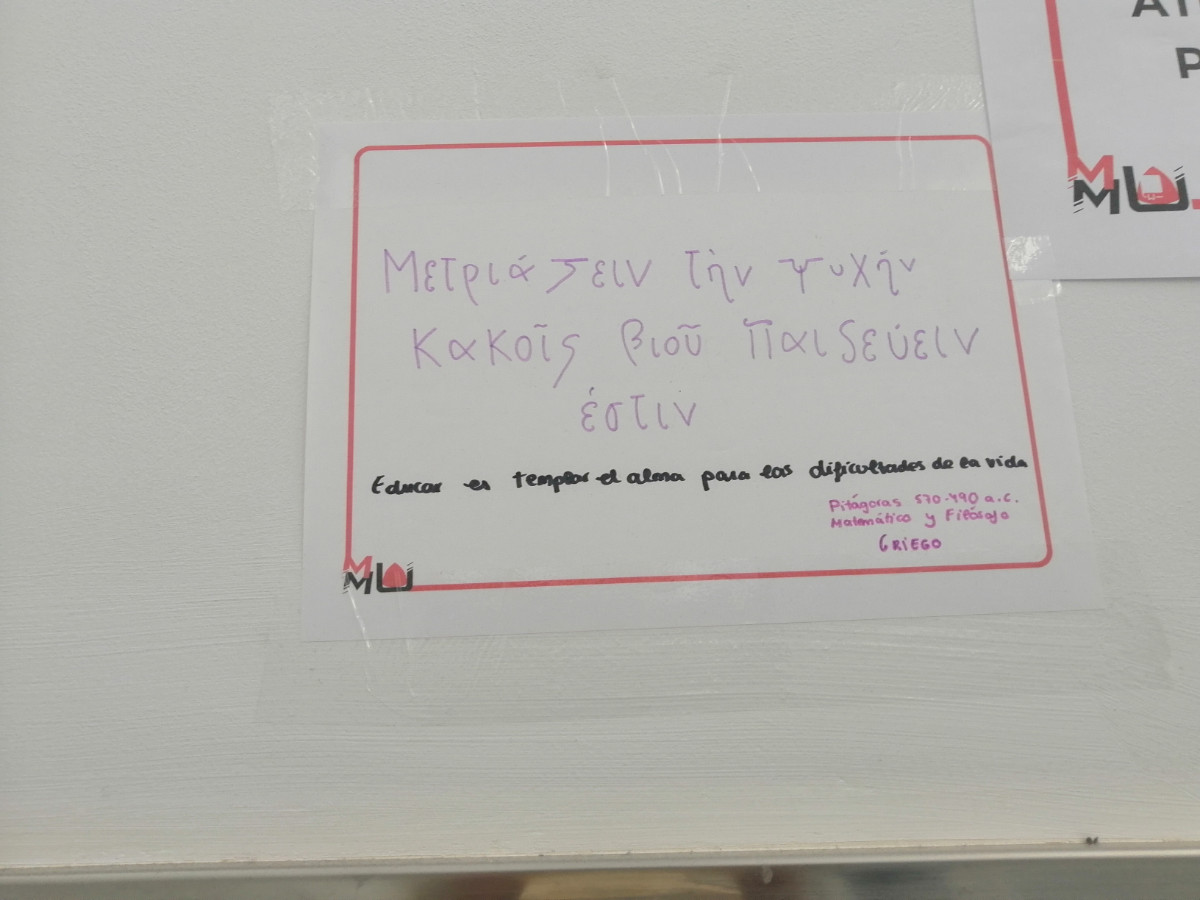 Μετριάζειν τὴν ψυχήν
κακοῖς βιοῦ παιδεύειν
ἐστιν
Educar es templar el alma para las dificultades de la vida
Pitágoras 570-490 a.c.
Matemático y Filósofo
GRIEGO
MMU